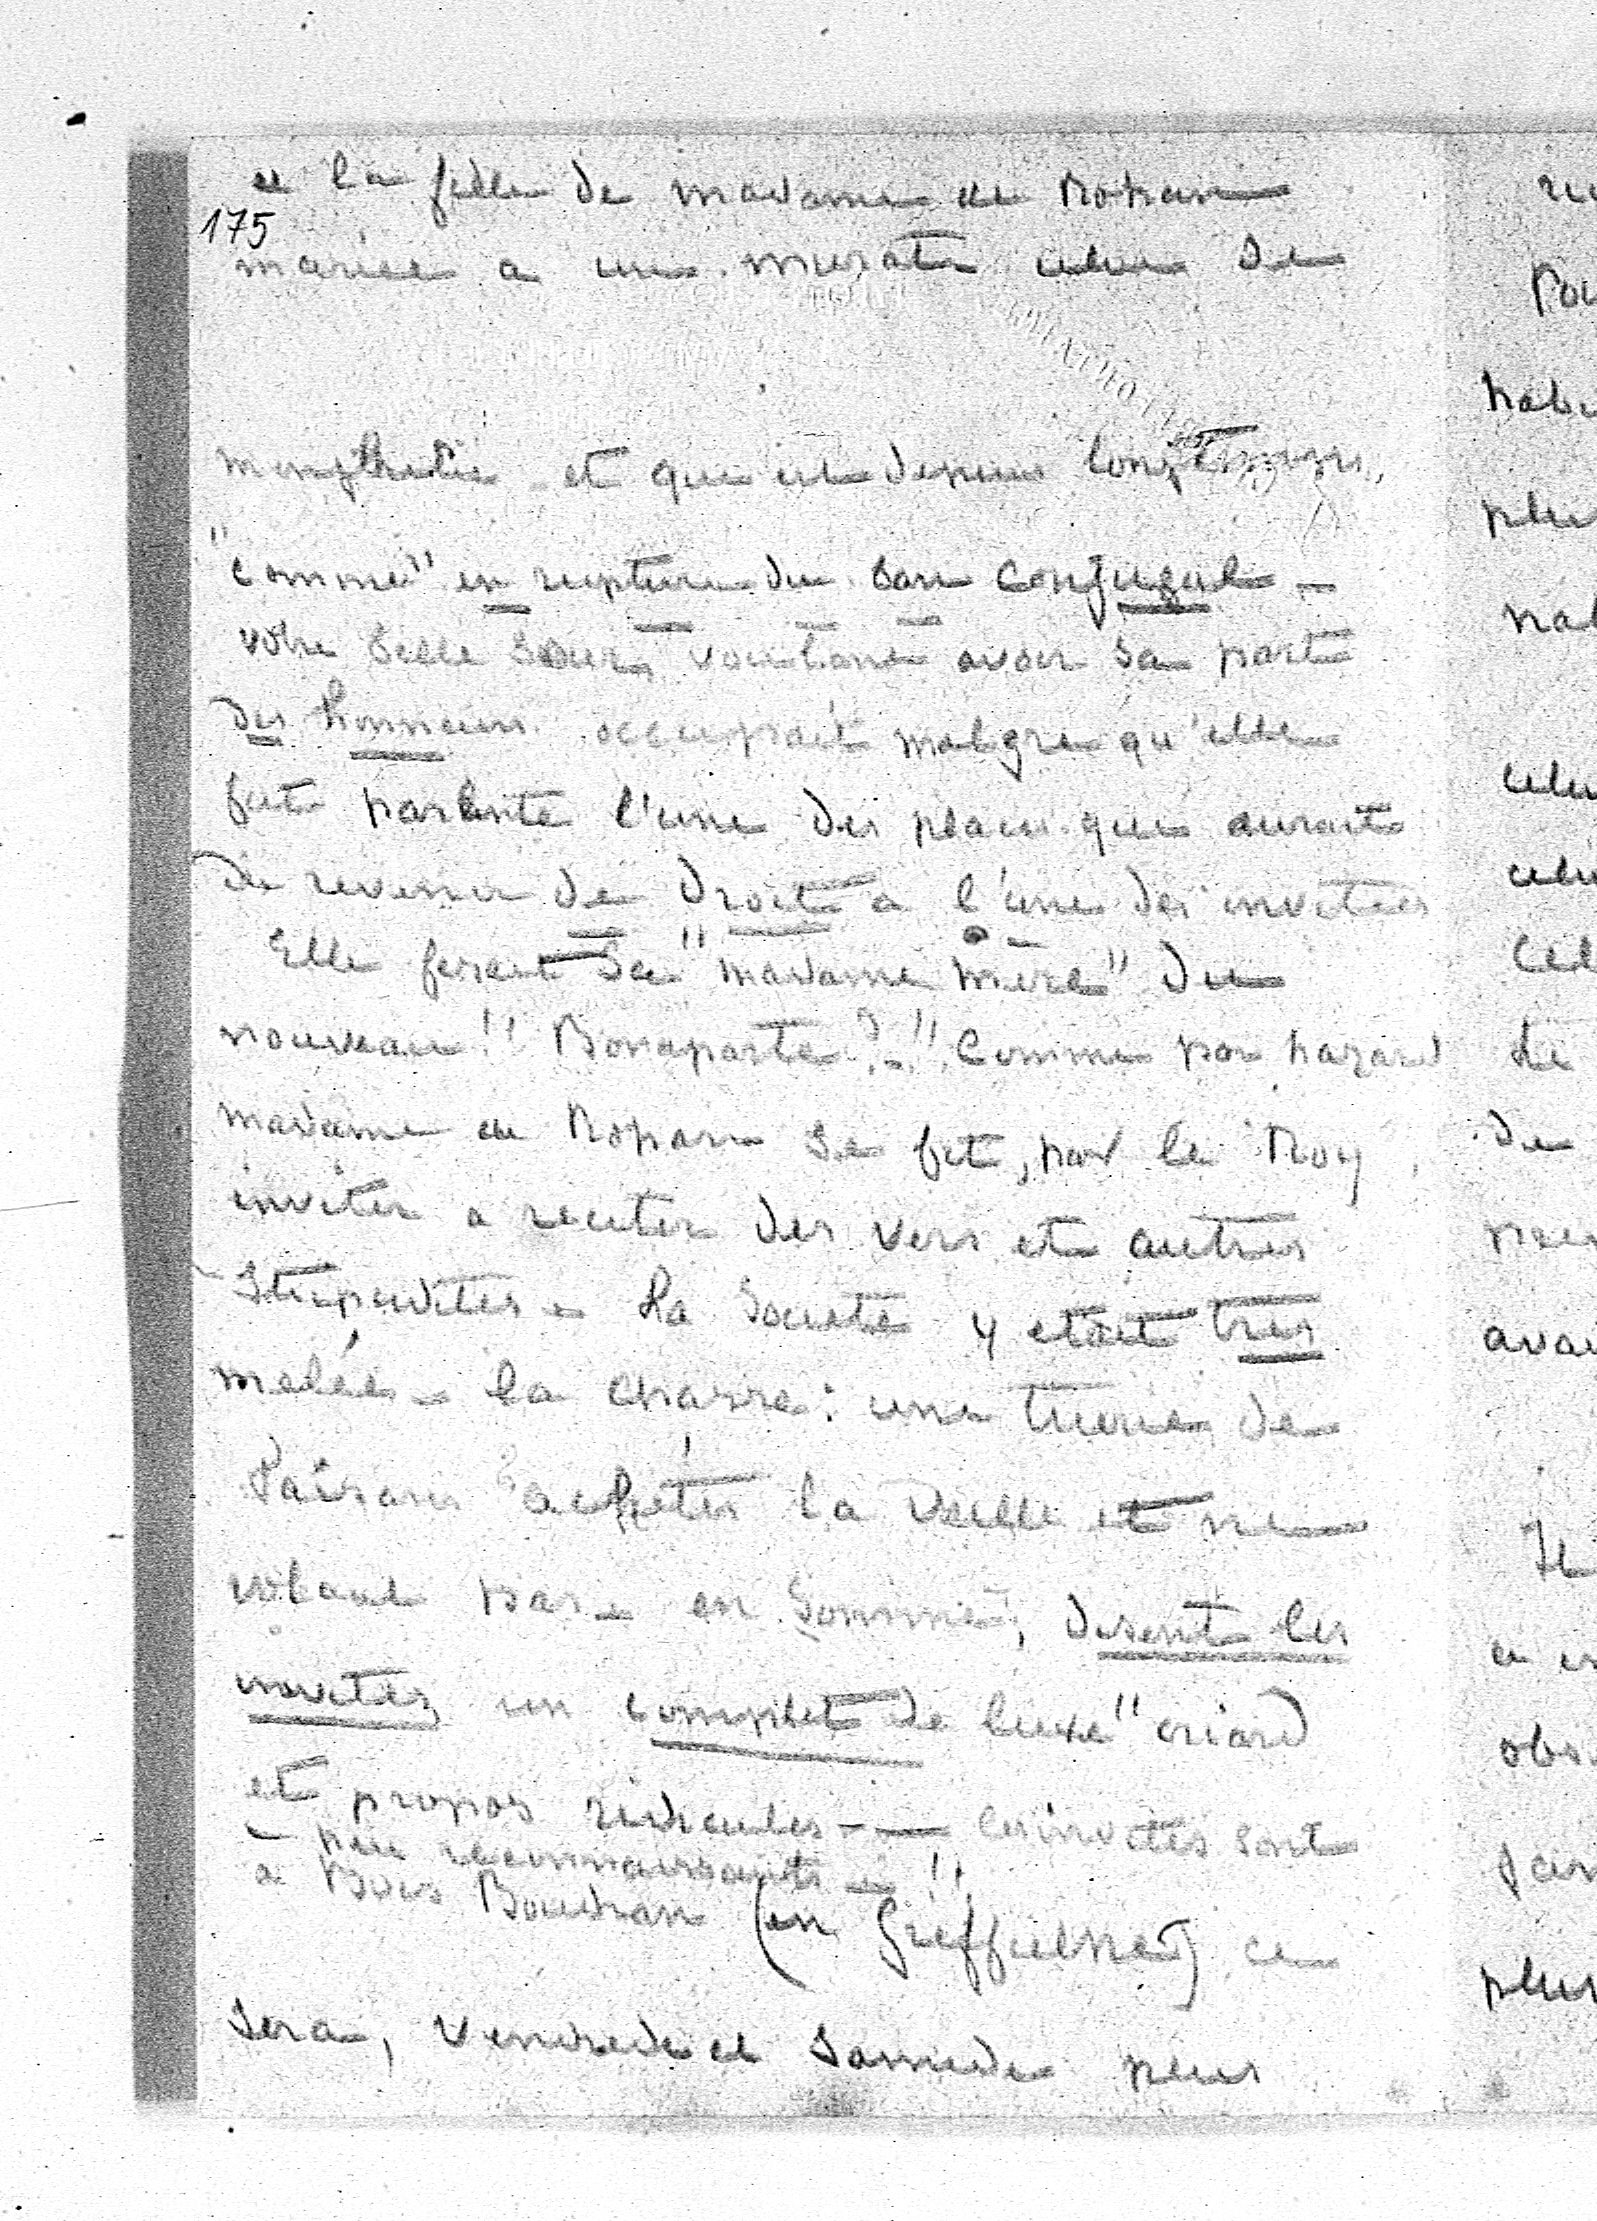 et la fille de madame de Rohan
175
mariée a un murat celui de
et que
"comme" en rupture du ban conjugal -
votre belle soeur, voulant avoir sa part
des honneurs occupait malgre qu'elle
fut parente l'une des places qui aurait
du revenir de droit a l'une des invitees
Elle ferait sa "madame mere" du
nouveau "Bonaparte?-" Comme par hazard
madame de Rohan se fit, par le Roy
inviter a reciter des vers et autres
Stupidites - La Societe y etait tres
melée - la chasse: une tuerie de
Faisans achetés la veille et ne
volant pas - en somme, disent les
invités, un complet de luxe "criard
et propos ridicules - - les invités sont
- peu reconnaissants - !!
a Bois Boudran (en Greffulhe) ce
sera, Vendredi et Samedi
re
Pou
habi
plu
celu
celu
Cel
de
avai
Il
obs
plus